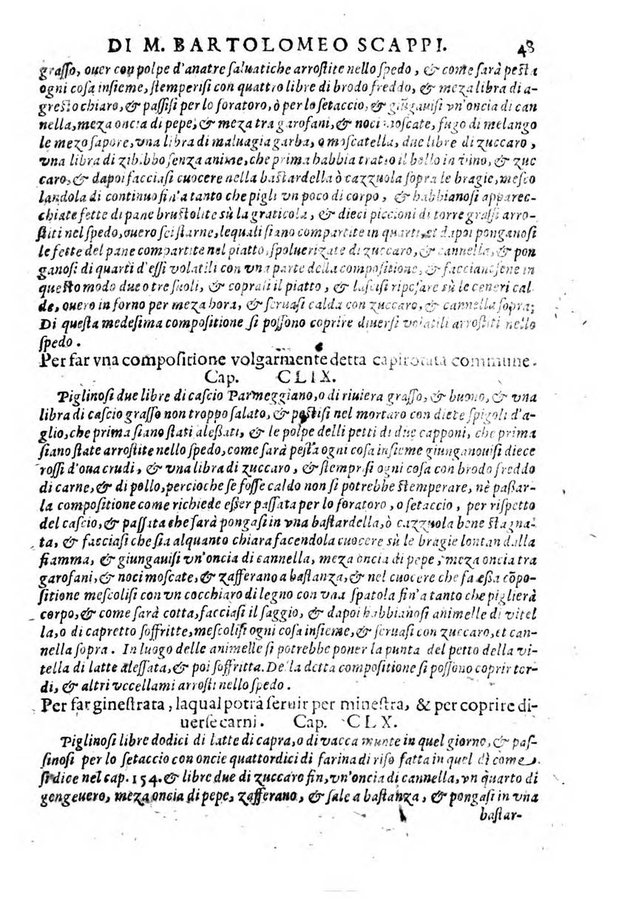 DI M. BARTOLOMEO SCAPPI. 48
grasso, ouer con polpe d'anatre saluatiche arrostite nello spedo, & come sarà pesta
ogni cosa insieme, stemperisi con quattro libre di brodo freddo, & meza libra di a-
gresto chiaro, & passisi per lo foratoro, ò per lo setaccio, & giungauisi vn'oncia di can
nella, meza oncia di pepe, & meza tra garofani, & noci moscate, sugo di melango
le mezo sapore, vna libra di maluagia garba, o moscatella, due libre di zuccaro,
vna libra di zibibbo senza anime, che prima habbia tratto il bollo in vino, & zuc
caro, & dapoi facciasi cuocere nella bastardella ò cazzuola sopra le bragie, mesco
landola di continuo fin'a tanto che pigli vn poco di corpo, & habbianosi apparec-
chiate fette di pane brustolite sù la graticola, & dieci piccioni di torre grassi arro-
stiti nel spedo, ouero sei starne, lequali siano compartite in quarti, et dapoi ponganosi
le fette del pane compartite nel piatto, spoluerizate di zuccaro, & cannella, & pon
ganosi di quarti d'essi volatili con vna parte della compositione, & faccianosene in
questo modo due o tre suoli, & coprasi il piatto, & lascisi riposare sù le ceneri cal
de, ouero in forno per meza hora, & seruasi calda con zuccaro, & cannella sopra;
Di questa medesima compositione si possono coprire diuersi volatili arrostiti nello
spedo.
Per far vna compositione volgarmente detta capirotata commune.
Cap. CLIX.
Piglinosi due libre di cascio Parmeggiano, o di riuiera grasso, & buono, & vna
libra di cascio grasso non troppo salato, & pestisi nel mortaro con diete spigoli d'a-
glio, che prima siano stati alessati, & le polpe delli petti di due capponi, che prima
siano state arrostite nello spedo, come sarà pesta ogni cosa insieme giunganouisi diece
rossi d'oua crudi, & vna libra di zuccaro, & stemprisi ogni cosa con brodo freddo
di carne, & di pollo, percioche se fosse caldo non si potrebbe stemperare, nè passar-
la compositione come richiede esser passata per lo foratoro, o setaccio, per rispetto
del cascio, & passata che sarà pongasi in vna bastardella, ò cazzuola bene stagna-
ta, & facciasi che sia alquanto chiara facendola cuocere sù le bragie lontan dalla
fiamma, & giungauisi vn'oncia di cannella, meza oncia di pepe, meza oncia tra
garofani, & noci moscate, & zafferano a bastanza, & nel cuocere che fa essa cōpo-
sitione mescolisi con vn cocchiaro di legno con vna spatola fin'a tanto che piglierà
corpo, & come sarà cotta, facciasi il saggio, & dapoi habbianosi animelle di vitel
la, o di capretto soffritte, mescolisi ogni cosa insieme, & seruasi con zuccaro, et can-
nella sopra. In luogo delle animelle si potrebbe poner la punta del petto della vi-
tella di latte alessata, & poi soffritta. De la detta compositione si possono coprir tor-
di, & altri vccellami arrosti nello spedo.
Per far ginestrata, laqual potrà seruir per minestra, & per coprire di-
uerse carni. Cap. CLX.
Piglinosi libre dodici di latte di capra, o di vacca munte in quel giorno, & pas-
sinosi per lo setaccio con oncie quattordici di farina di riso fatta in quel dì come
si dice nel cap. 154. & libre due di zuccaro fin, vn'oncia di cannella, vn quarto di
gengeuero, meza oncia di pepe, zafferano, & sale a bastanza, & pongasi in vna
bastar-